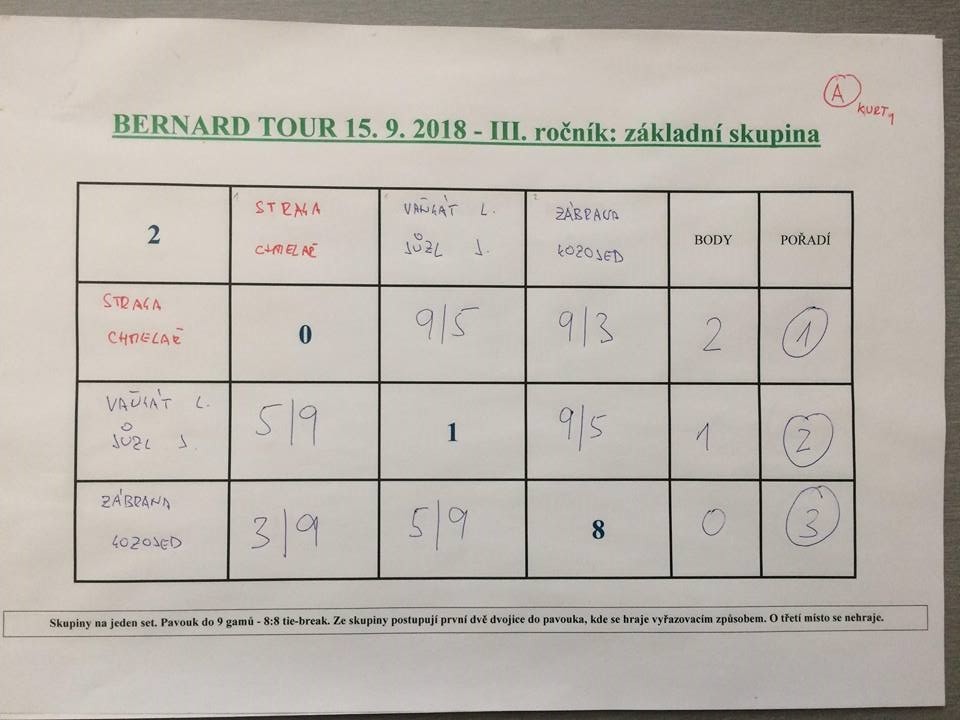 A KURT 1
BERNARD TOUR 15. 9. 2018 - III. ročník: základní skupina
2
STRAGA
CHMELAŘ
VAŇKÁT L.
SŮZL J.
ZÁBRANA
KOZOJED
BODY
POŘADÍ
STRAGA
CHMELAŘ
0
9/5
9/3
2
1
VAŇKÁT L.
SŮZL J.
5/9
1
9/5
1
2
ZÁBRANA
KOZOJED
3/9
5/9
8
0
3
Skupiny na jeden set. Pavouk do 9 gamů - 8:8 tie-break. Ze skupiny postupují první dvě dvojice do pavouka, kde se hraje vyřazovacím způsobem. O třetí místo se nehraje.